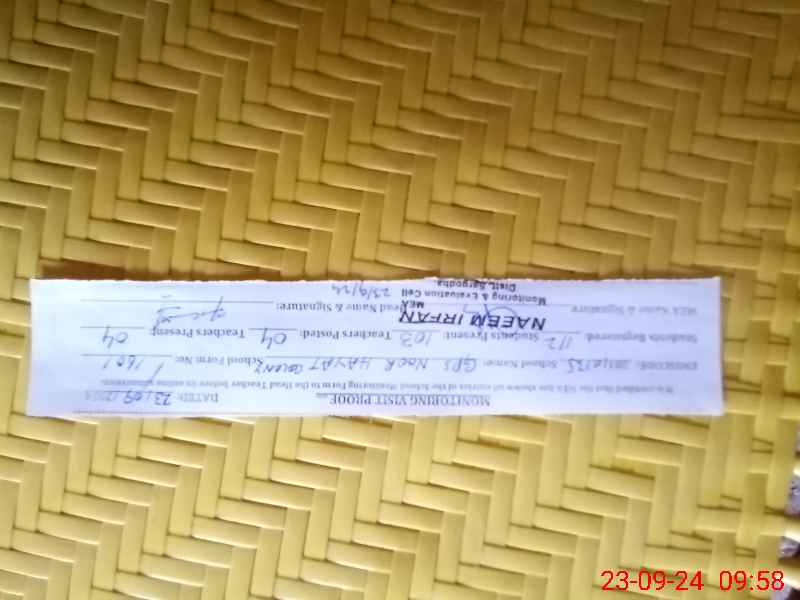 MONITORING VISIT PROOF DATED: 23/09/2024
It is certified that the MEA has shown all entries of the School Monitoring Form to the Head Teacher before its online submission.
EMISCODE: School Name: GPS NOOR HAYAT COLONY School Form No: 1601
Students Registered: 112 Students Present: 103 Teachers Posted: 04 Teachers Present: 04
MEA Name & Signature Head Name & Signature:
NAEEM IRFAN
MEA
Monitoring & Evaluation Cell
Distt. Sargodha.
23/9/24
23-09-24 09:58